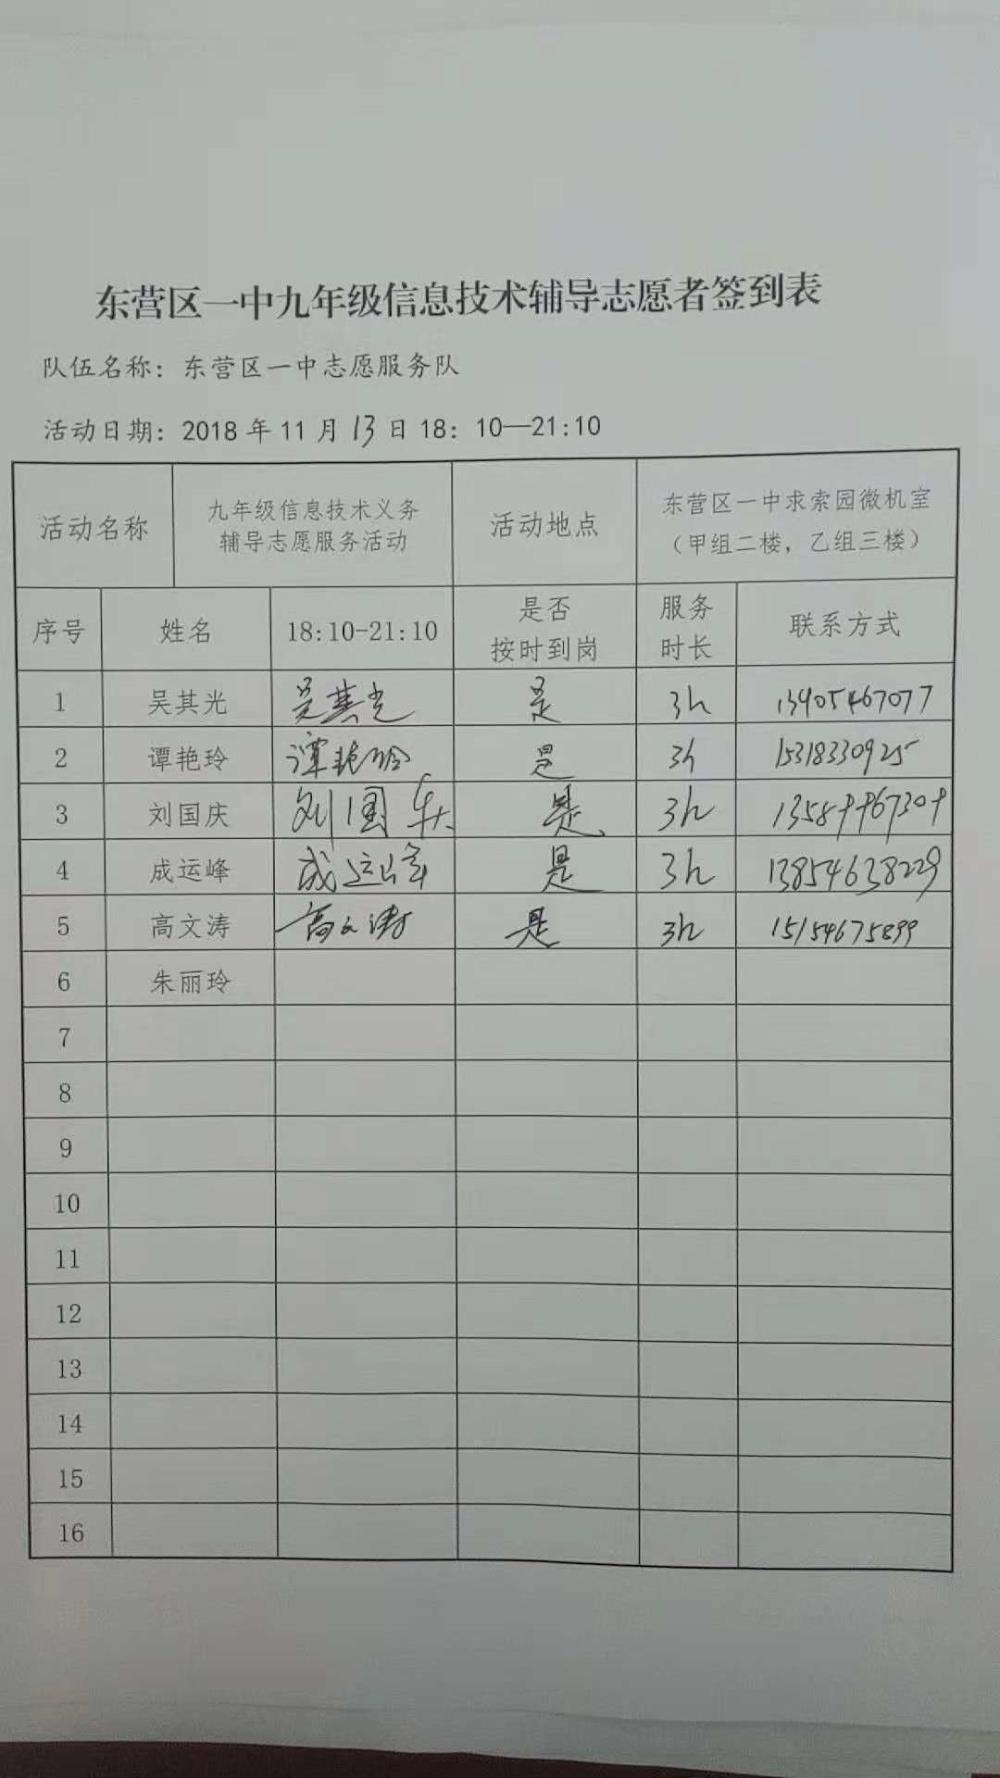 东营区一中九年级信息技术辅导志愿者签到表
队伍名称：东营区一中志愿服务队
活动日期：2018 年 11 月 13 日 18：10—21:10
活动名称 九年级信息技术义务 活动地点 东营区一中求索园微机室
辅导志愿服务活动 （甲组二楼，乙组三楼）
序号 姓名 18:10-21:10 是否 服务 联系方式
按时到岗 时长
1 吴其光 吴其光 是 3h 13905467077
2 谭艳玲 谭艳玲 是 3h 15318330925
3 刘国庆 刘国庆 是 3h 13589967309
4 成运峰 成运峰 是 3h 13854638229
5 高文涛 高文涛 是 3h 15154675899
6 朱丽玲
7
8
9
10
11
12
13
14
15
16